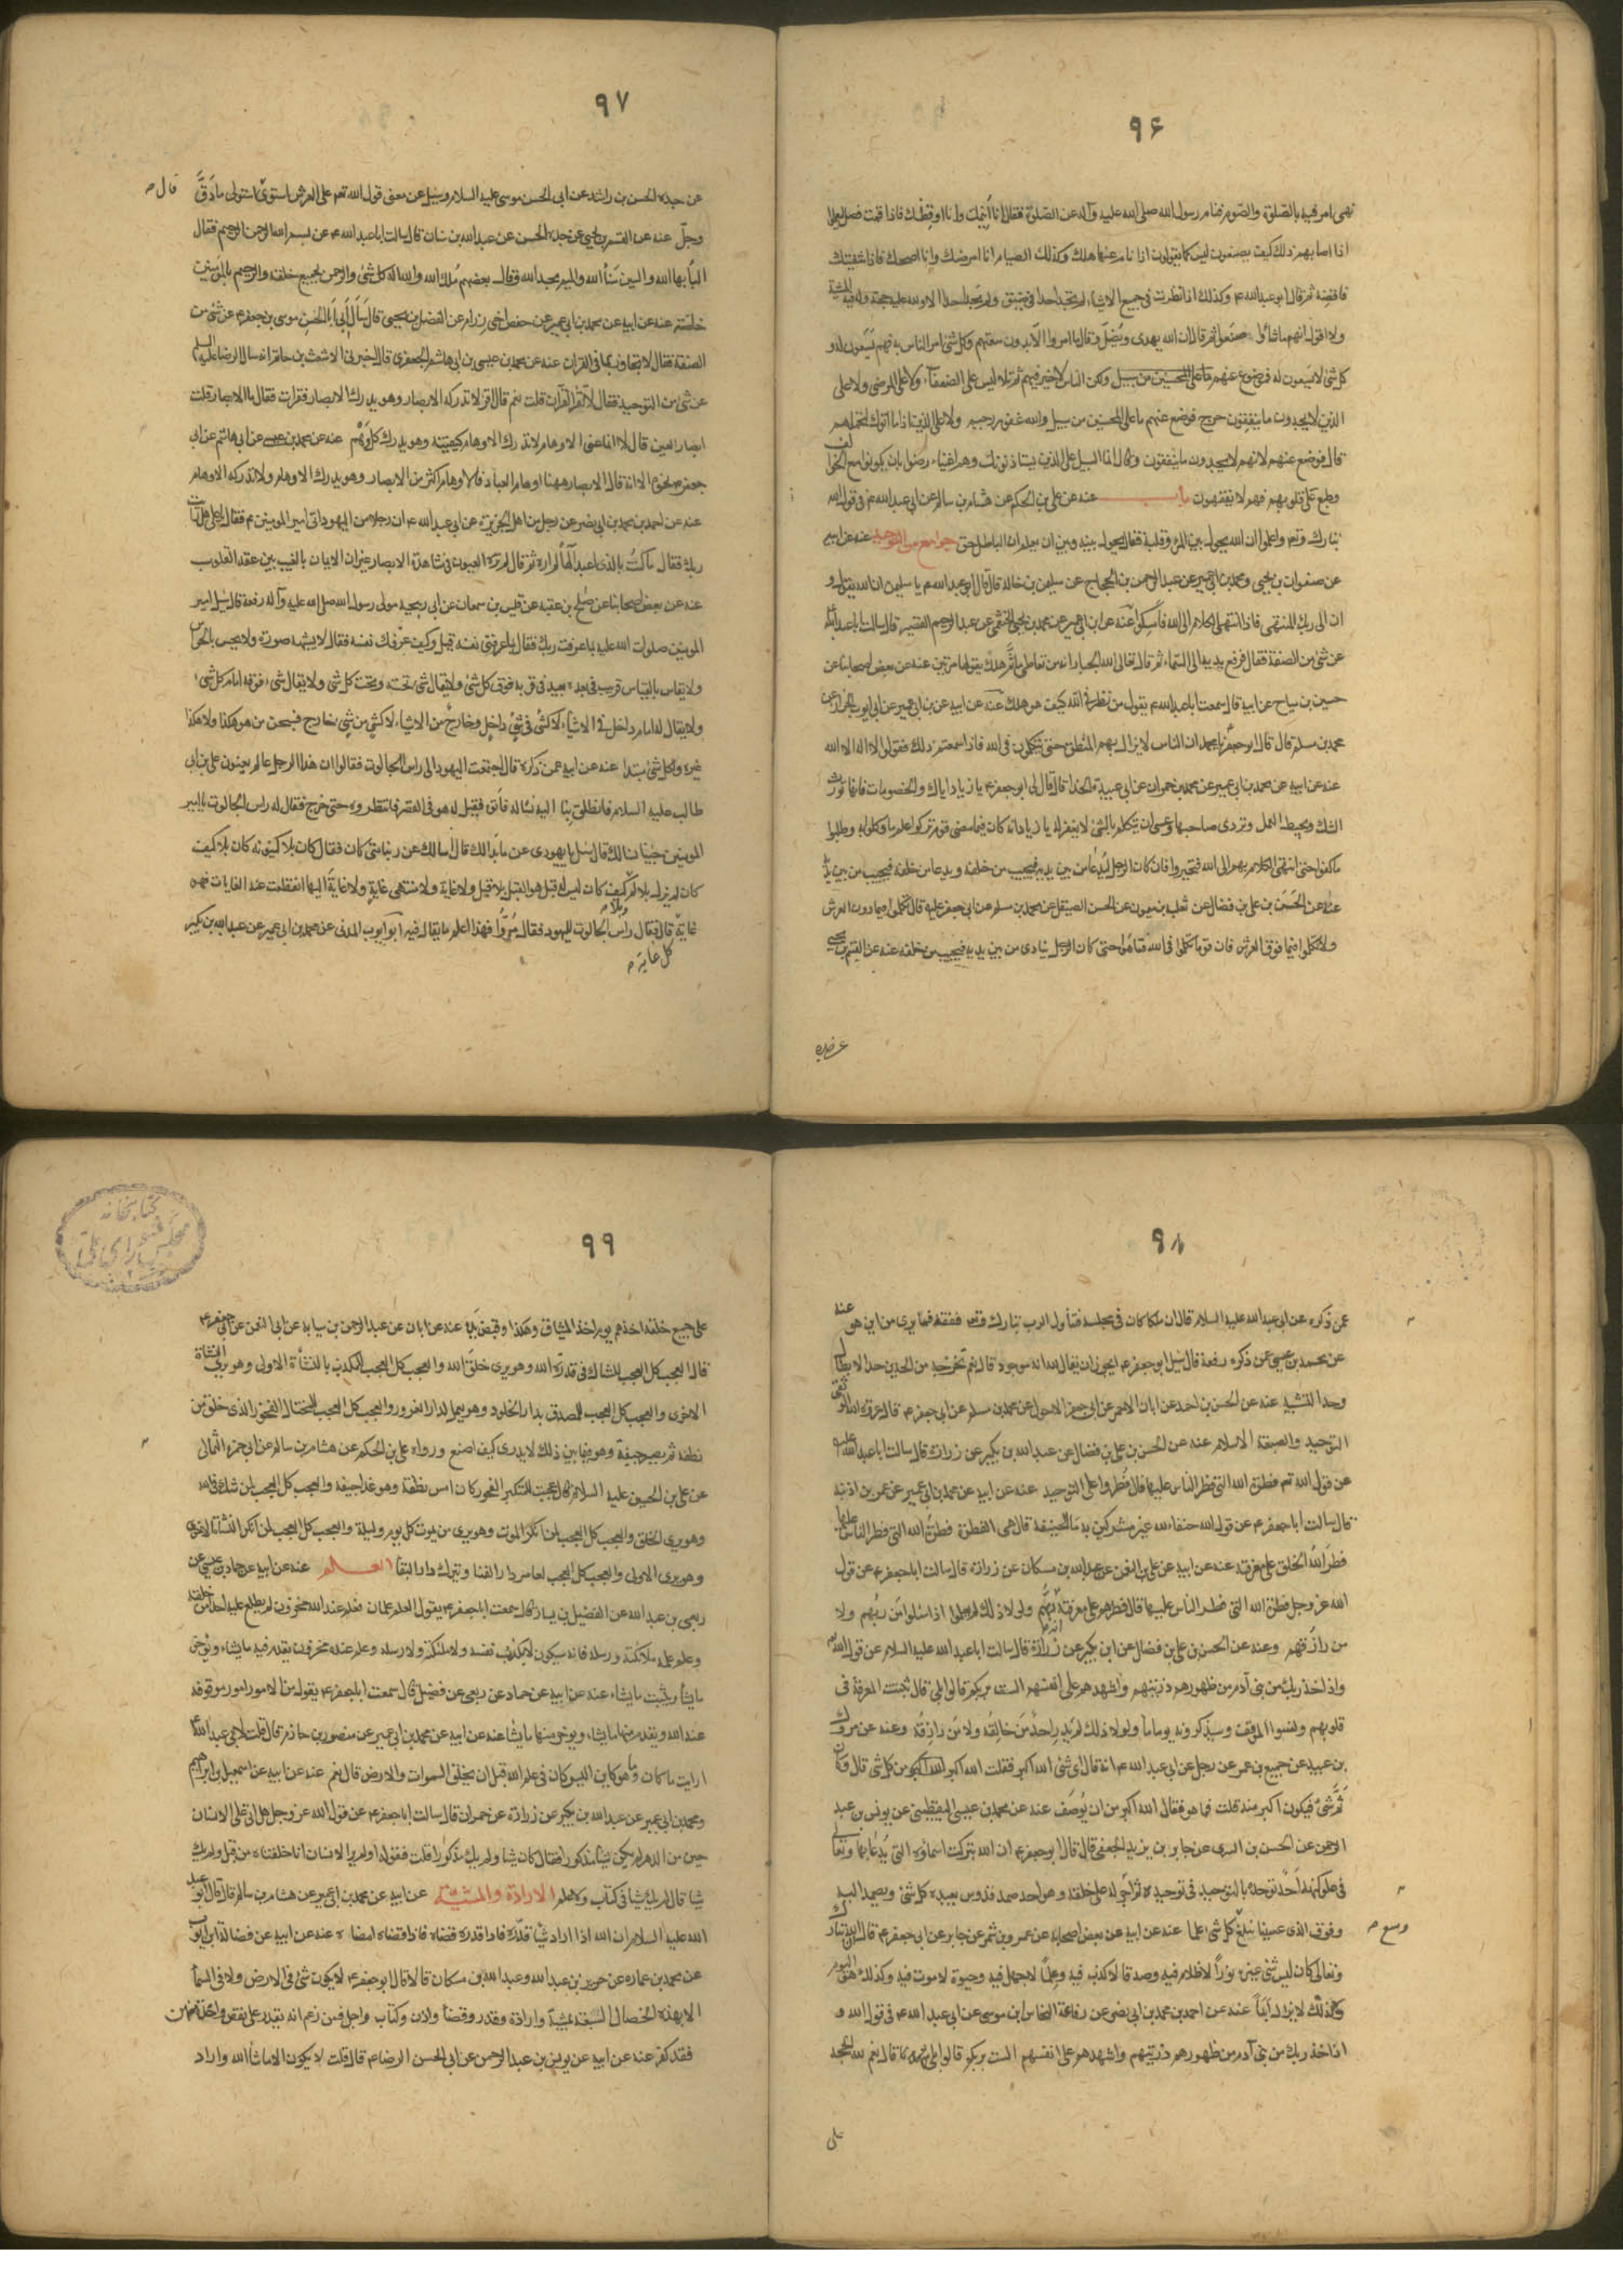 ٩۶
نهى امر فيه بالصلوة والصوم فنام رسول الله صلى الله عليه وآله عن الصلوة فقال انا أُنيمك وانا اوقظك فاذا قمت فصل ليعلموا
اذا اصابهم ذلك كيف يصنعون ليس كما يقولون اذا نام عنها هلك وكذلك الصيام انا امرضك وانا اصحك فاذا شفيتك
فاقضه ثم قال ابو عبد الله ع وكذلك اذا نظرت فى جميع الاشياء لم تجد احدا فى ضيق ولم تجد احدا الا ولله عليه حجة وله فيه المشية
ولا اقول انهم ماشاؤا صنعوا ثم قال ان الله يهدى ويضل وقال ما امروا الا بدون سعتهم وكل شئ امر الناس به فهم يسعون له و
كل شئ لا يسعون له فموضوع عنهم ولكن الناس لا خير فيهم ثم تلا ليس على الضعفاء ولا على المرضى ولا على
الذين لا يجدون ما ينفقون حرج فوضع عنهم ما على المحسنين من سبيل والله غفور رحيم ولا على الذين اذا ما اتوك لتحملهم
قال فوضع عنهم لانهم لا يجدون ما ينفقون وقال انما السبيل على الذين يستاذنونك وهم اغنياء رضوا بان يكونوا مع الخوالف
وطبع على قلوبهم فهم لا يفقهون باب عنه عن على بن الحكم عن هشام بن سالم عن ابى عبد الله ع فى قول الله
تبارك وتعم واعلموا ان الله يحول بين المرء وقلبه فقال يحول بينه وبين ان يعلم ان الباطل حق جوامع من التوحيد عنه عن ابيه
عن صفوان بن يحيى ومحمد بن ابى عمير عن عبد الرحمن بن الحجاج عن سليمن بن خالد قال قال ابو عبد الله ع يا سليمن ان الله يقول و
ان الى ربك المنتهى فاذا انتهى الكلام الى الله فأمسكوا عنه عن ابن ابى عمير عن محمد بن يحيى الخثعمى عن عبد الرحيم القصير قال سالت ابا عبد الله
عن شئ من الصفة فقال فرفع يديه الى السماء ثم قال تعالى الله الجبار انه من تعاطى ما ثَمَّ هلك يقولها مرتين عنه عن بعض اصحابنا عن
حسين بن مياح عن ابيه قال سمعت ابا عبد الله ع يقول من نظر فى الله كيف هو هلك عنه عن ابيه عن بن ابى عمير عن ابى ايوب الخزاز عن
محمد بن مسلم قال قال ابو جعفر ع يا محمد ان الناس لا يزال بهم المنطق حتى يتكلمون فى الله فاذا سمعتم ذلك فقولوا لا اله الا الله
عنه عن ابيه عن محمد بن ابى عمير عن محمد بن حمران عن ابى عبيدة الحذاء قال قال لى ابو جعفر ع يا زياد اياك والخصومات فانها تورث
الشك وتحبط العمل وتردى صاحبها وعسى ان يتكلم بالشئ لا يغفر له يا زياد انه كان فيما مضى قوم تركوا علم ما وكلوا به وطلبوا
ما كفوا حتى انتهى الكلام بهم الى الله فتحيروا فان كان الرجل لَيُدعا من بين يديه فيجيب من خلفه ويدعا من خلفه فيجيب من بين يديه
عنه عن الحسن بن على بن فضال عن ثعلب بن ميمون عن الحسن الصيقل عن محمد بن مسلم عن ابى جعفر عليه قال تكلموا فيما دون العرش
ولا تكلموا فيما فوق العرش فان قوما تكلموا فى الله فتاهُوا حتى كان الرجل ينادى من بين يديه فيجيب من خلفه عنه عن القسم بن يحيى
عن جده
٩٧
عن جده الحسن بن راشد عن ابى الحسن موسى عليه السلام وسئل عن معنى قول الله تعم على العرش استوى استولى ما دَقَّ قال
وجلّ عنه عن القسم بن يحيى عن جده الحسن عن عبد الله بن سنان قال سالت ابا عبد الله ع عن بسم الله الرحمن الرحيم فقال
الباء بهاء الله والسين سَناء الله والميم مجد الله وقال بعضهم مُلك الله والله اله كل شئ والرحمن بجميع خلقه والرحيم بالمؤمنين
خاصّة عنه عن ابيه عن محمد بن ابى عمير عن حفص اخى مرازم عن الفضل بن يحيى قال سَأَلَ أبى أبا الحَسن موسى بن جعفر ع عن شئ من
الصفة فقال لا تجاوز بما فى القران عنه عن محمد بن عيسى بن ابى هاشم الجعفرى قال اخبرنى الاشعث بن حاتم انه سال الرضا عليه السلم
عن شئ من التوحيد فقال لا تَقْرَأ القرآن قلت نعم قال اقرأ لا تدركه الابصار وهو يدرك الابصار فقرات فقال ما الابصار قلت
ابصار العين قال لا انما عنى الاوهام لا تدرك الاوهام كيفيته وهو يدرك كل وَهْم عنه عن محمد بن عيسى عن ابى هاشم عن ابى
جعفر ع نحوه الا انه قال الابصار ههنا اوهام العباد فالاوهام اكثر من الابصار وهو يدرك الاوهام ولا تدركه الاوهام
عنه عن احمد بن محمد بن ابى نصر عن رجل من اهل الجزيرة عن ابى عبد الله ع ان رجلا من اليهود اتى امير المومنين ع فقال يا على هل رأيت
ربك فقال ما كنتُ بالذى اعبد الهًا لم اره ثم قال لم تره العيون فى مشاهدة الابصار غير ان الايمان بالغيب بين عقد القلوب
عنه عن بعض اصحابنا عن صلح بن عقبة عن قيس بن سمعان عن ابى ربيحة مولى رسول الله صلى الله عليه وآله رفعه قال سئل امير
المومنين صلوات الله عليه بما عرفت ربك فقال بما عرفنى نفسه قيل وكيف عرّفك نفسه فقال لا يشبهه صورة ولا يحس بالحواس
ولا يقاس بالقياس قريب فى بعده بعيد فى قربه فوق كل شئ ولا يقال شئ تحته وتحت كل شئ ولا يقال شئ فوقه امام كل شئ
ولا يقال له امام داخل فى الاشياء لا كشئ فى شئ داخل وخارج من الاشياء لا كشئ من شئ خارج فسبحن من هو هكذا ولا هكذا
غيره ولكل شئ مبتدا عنه عن ابيه عمن ذكره قال اجتمعت اليهود الى راس الجالوت فقالوا ان هذا الرجل عالم يعنون على بن ابى
طالب عليه السلام فانطلق بنا اليه نسأله فأتوه فقيل له هو فى القصر فانتظروه حتى خرج فقال له راس الجالوت يا امير
المومنين جئنا نسالك قال سَل يا يهودى عن ما بَدا لك قال اسالك عن ربنا متى كان فقال كان بلا كينونة كان بلا كيف
كان لم يزل بلا كم وبلا كيف كان ليس له قبل هو القبل بلا قبل ولا غاية ولا منتهى غايةٍ ولا غايةً اليها انقطعت عنه الغايات فهو
غاية كل غاية قال فقال راس الجالوت لليهود فقال مُرّوا فهذا اعلم ما يقال فيه ابو ايوب المدنى عن محمد بن ابى عمير عن عبد الله بن بكير
٩٨
عمن ذكره عن ابى عبد الله عليه السلام قال ان ملكا كان فى مجلسه فتأول الرب تبارك وتعم ففقد فما يرى من اين هو عنه
عن محمد بن عيسى عن ذكره رفعه قال سئل ابو جعفر ع ايجوز ان يقال لله انه موجود قال نعم تخرجه من الحدين حد الابطال
وحد التشبيه عنه عن الحسن بن احمد عن ابان الاحمر عن ابى جعفر الاحول عن محمد بن مسلم عن ابى جعفر ع قال عروة الله الوثقى
التوحيد والصبغة الاسلام عنه عن الحسن بن على بن فضال عن عبد الله بن بكير عن زرارة قال سالت ابا عبد الله عليه
عن قول الله تعم فطرة الله التى فطر الناس عليها قال فُطروا على التوحيد عنه عن ابيه عن محمد بن ابى عمير عن عمر بن اذينة
قال سالت ابا جعفر ع عن قول الله حنفاء لله غير مشركين به ما الحنيفة قال هى الفطرة فطرة الله التى فطر الناس عليها
فطر الله الخلق على معرفته عنه عن ابيه عن على بن النعمن عن عبد الله بن مسكان عن زرارة قال سالت ابا جعفر ع عن قول
الله عز وجل فطرة الله التى فطر الناس عليها قال فطرهم على معرفته انه ربهم ولولا ذلك لم يعلموا اذا سئلوا من ربهم ولا
من رازقهم وعنه عن الحسن بن على بن فضال عن ابن بكير عن زرارة قال سالت ابا عبد الله عليه السلام عن قول الله تعم
واذ اخذ ربك من بنى آدم من ظهورهم ذريتهم واشهدهم على انفسهم الست بربكم قالوا بلى قال ثبتت المعرفة فى
قلوبهم ونسوا الموقف وسيذكرونه يوما ما ولولا ذلك لم يدر احدٌ مَن خالقُه ولا مَن رازِقُه وعنه عن مروك
بن عبيد عن جميع بن عمر عن رجل عن ابى عبد الله ع انه قال اى شئ الله اكبر فقلت الله اكبر من كل شئ قال وكان
ثَمَّ شئٌ فيكون اكبر منه قلت فما هو فقال الله اكبر من ان يُوصَف عنه عن محمد بن عيسى اليقطينى عن يونس بن عبد
الرحمن عن الحسن بن السرى عن جابر بن يزيد الجعفى قال قال ابو جعفر ع ان الله تبركت اسماؤه التى يُدعا بها وتعالى
فى علو كنهه اَحَدٌ توحد بالتوحيد فى توحيده ثم اجراه على خلقه وهو احد صمد قدوس يعبده كل شئ ويصمد اليه
وفوق الذى عسينا نبلغ كل شئ علما عنه عن ابيه عن بعض اصحابه عن عمرو بن شمر عن جابر عن ابى جعفر ع قال ان الله تبارك وسع
وتعالى كان ليس شئ غيره نوراً لا ظلام فيه وصدقا لا كذب فيه وعِلماً لا جهل فيه وحيوة لا موت فيه وكذلك هو اليوم
وكذلك لا يزال ابَداً عنه عن احمد بن محمد بن ابى نصر عن رفاعة النخاس ابن موسى عن ابى عبد الله ع فى قول الله و
اذ اخذ ربك من بنى آدم من ظهورهم ذريتهم واشهدهم على انفسهم الست بربكم قالوا بلى قال نعم لله الحجة
على
٩٩
على جميع خلقه اخذهم يوم اخذ الميثاق وهكذا وقبض يدَه عنه عن ابان عن عبد الرحمن بن سيابة عن ابى النعمن عن ابى جعفر ع
قال العجب كل العجب للشاك فى قدرة الله وهو يرى خلق الله والعجب كل العجب للمكذب بالنشأة الاخرى وهو يرى النشاة
الاولى والعجب كل العجب للمصدق بدار الخلود وهو يعمل لدار الغرور والعجب كل العجب للمختال الفخور الذى خلق من
نطفة ثم يصير جيفة وهو فيما بين ذلك لا يدرى كيف اصنع ورواه على بن الحكم عن هشام بن سالم عن ابى حمزة الثمالى
عن على بن الحسين عليه السلام قال عجبت للمتكبر الفخور كان امس نطفة وهو غدا جيفة والعجب كل العجب لمن شك فى الله
وهو يرى الخلق والعجب كل العجب لمن انكر الموت وهو يرى من يموت كل يوم وليلة والعجب كل العجب لمن انكر النشأة الاخرى
وهو يرى الاولى والعجب كل العجب لعامر دار الفنا ويترك دار البقا العلم عنه عن ابيه عن حماد بن عيسى عن
ربعى بن عبد الله عن الفضيل بن يسار قال سمعت ابا جعفر ع يقول العلم علمان فعلم عند الله مخزون لم يطلع عليه احدا من خلقه
وعلم علمه ملائكته ورسله فانه سيكون لا يكذب نفسه ولا ملئكته ولا رسله وعلم عنده مخزون يقدم فيه مايشاء ويؤخر
مايشأ ويثبت مايشاء عنه عن ابيه عن حماد عن ربعى عن فضيل قال سمعت ابا جعفر ع يقول من الامور امور موقوفة
عند الله ويقدم منها مايشاء ويوخر منها مايشا عنه عن ابيه عن محمد بن ابى عمير عن منصور بن حازم قال قلت لابى عبد الله ع
ارايت ما كان وما هو كاين اليس كان فى علم الله قبل ان يخلق السموات والارض قال نعم عنه عن ابيه عن اسمعيل بن ابراهيم
ومحمد بن ابى عمير عن عبد الله بن بكير عن زرارة عن حمران قال سالت ابا جعفر ع عن قول الله عز وجل هل اتى على الانسان
حين من الدهر لم يكن شيئا مذكورا فقال كان شيئا ولم يك مذكورًا قلت فقوله اولم ير الانسان انا خلقناه من قبل ولم يك
شيا قال لم يك شيئا فى كتاب ولا علم الارادة والمشية عن ابيه عن محمد بن ابى عمير عن هشام بن سالم قال قال ابو عبد
الله عليه السلام ان الله اذا اراد شيئا قدّره فاذا قدره قضاه فاذا قضاه امضاه عنه عن ابيه عن فضالة بن ايوب
عن محمد بن عماره عن حريز بن عبد الله وعبد الله بن مسكان قالا قال ابو جعفر ع لا يكون شئ فى الارض ولا فى السماء
الا بهذه الخصال السبعة بمشية وارادة وقدر وقضاء واذن وكتاب واجل فمن زعم انه يقدر على نقص واحدة منهن
فقد كفر عنه عن ابيه عن يونس بن عبد الرحمن عن ابى الحسن الرضا ع قال قلت لا يكون الا ماشاء الله واراد
كتابخانه
مجلس شوراى ملى